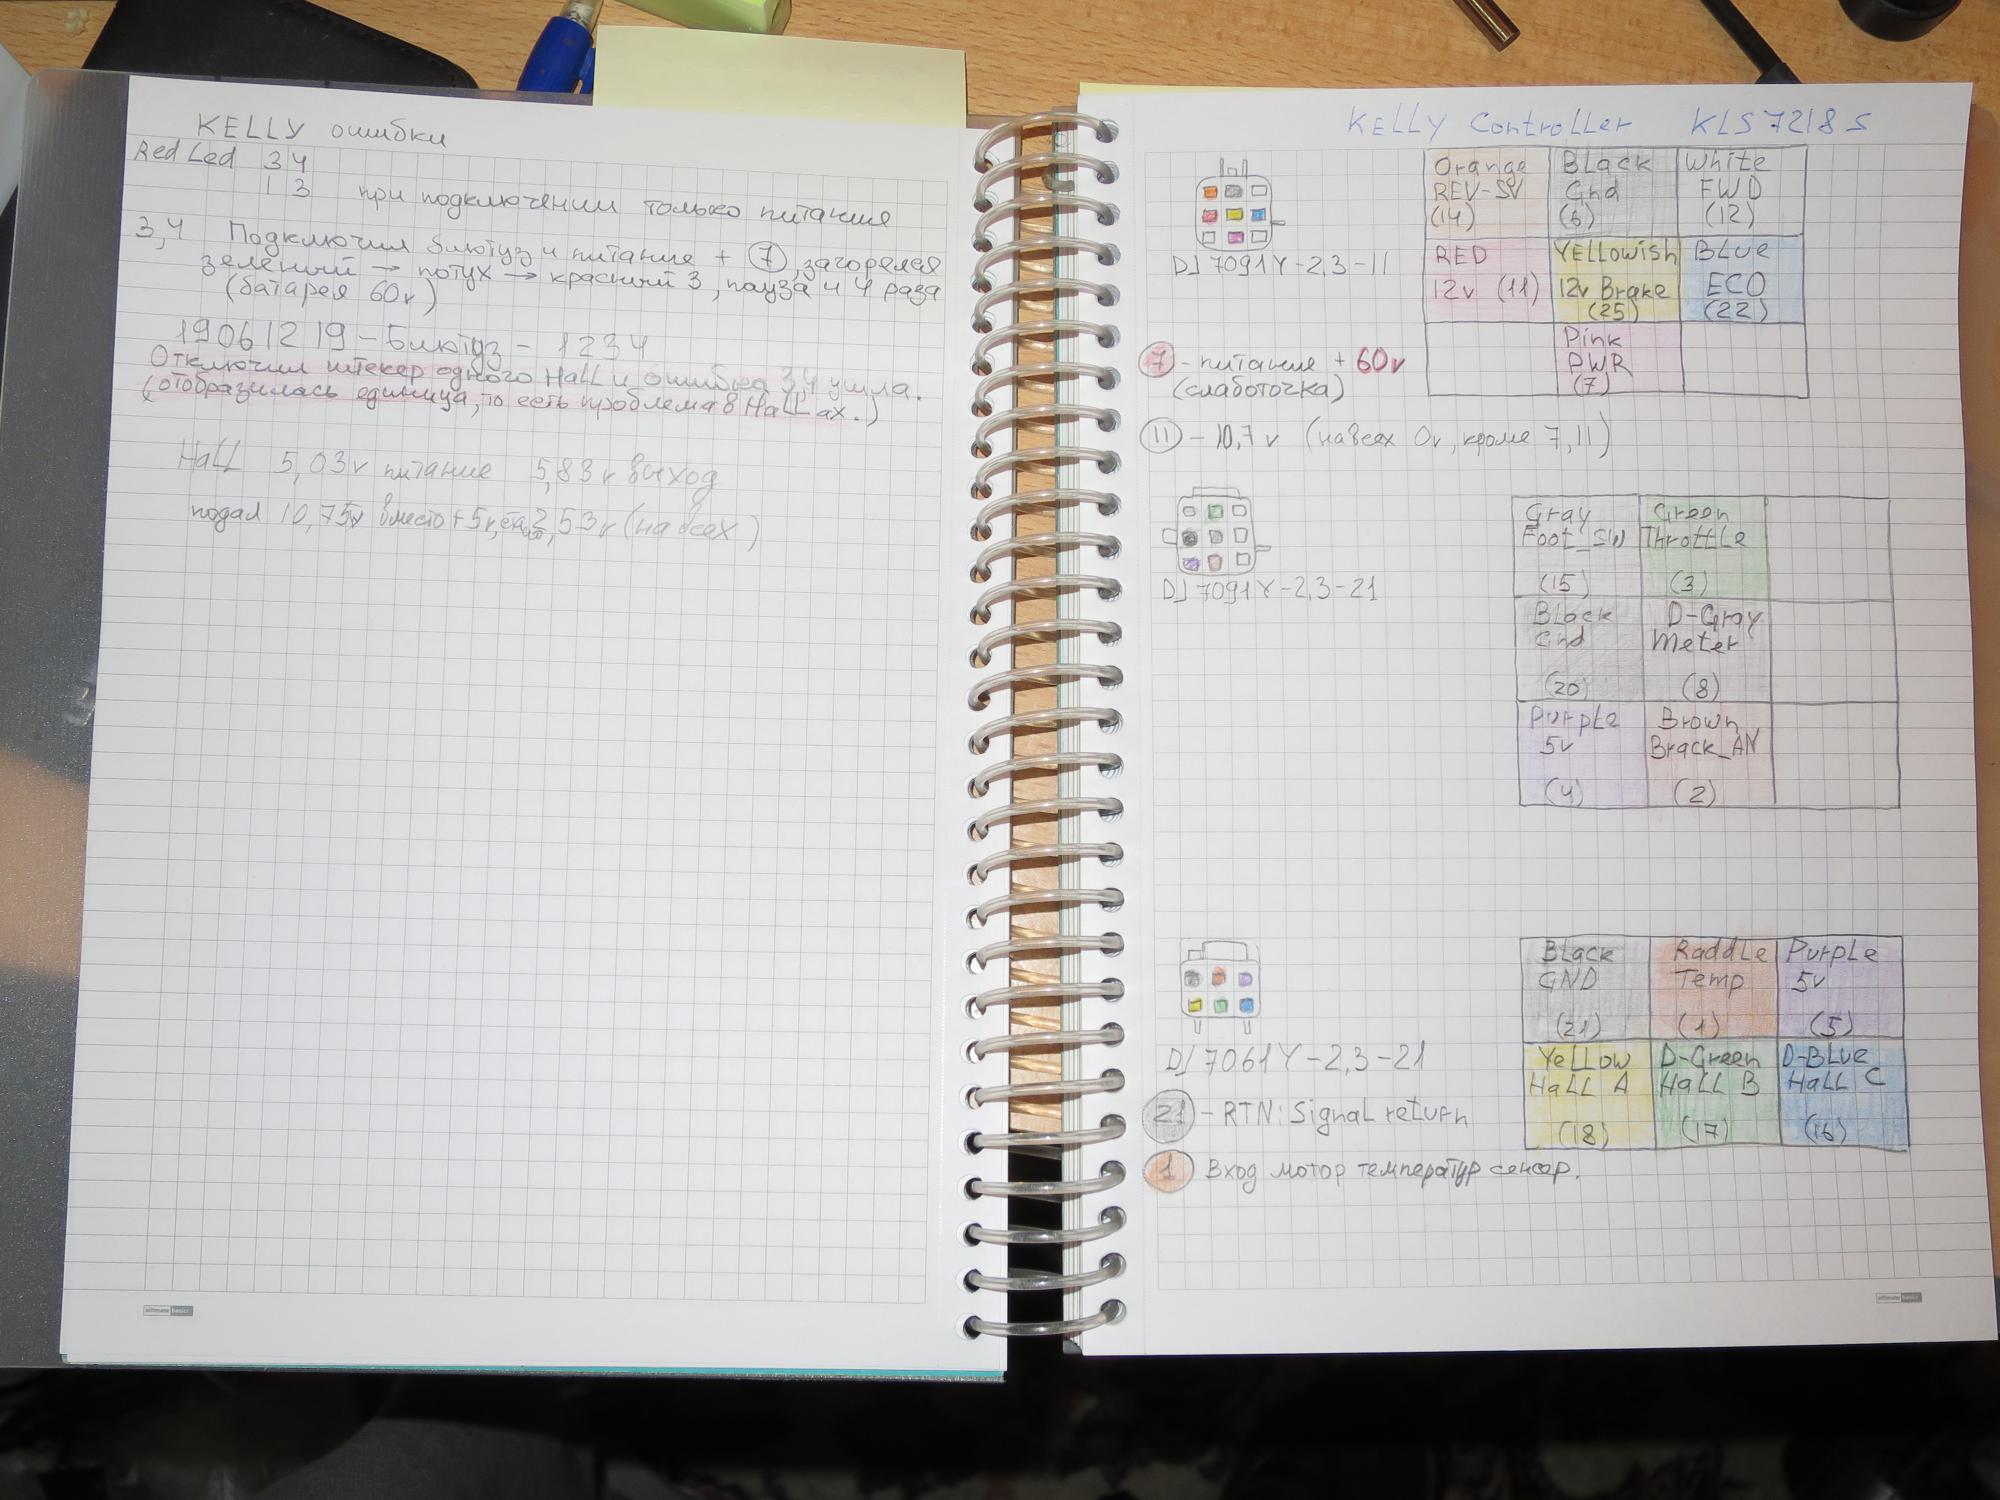 KELLY ошибки
Red Led 3 4
1 3 при подключении только питания
3,4 Подключил блютуз и питание + 7, загорелся
зеленый → потух → красный 3, пауза и 4 раза
(батарея 60v)
19061219 - Блютуз - 1234
Отключил штекер одного Hall и ошибка 3,4 ушла.
(отобразилась единица, то есть проблема в Hall ах.)
Hall 5,03v питание 5,83v выход
подал 10,75v вместо +5v, 3,53v (на всех)
ultimate basics
KELLY Controller KLS7218S
Orange REV-SV (14)
Black Gnd (6)
White FWD (12)
RED 12v (11)
YELLOWish 12v Brake (25)
BLue ECO (22)
Pink PWR (7)
DJ7091Y-2,3-11
7 - питания + 60v
(слаботочка)
11 - 10,7v (на всех 0v, кроме 7,11)
Gray Foot_SW (15)
Green Throttle (3)
Black Gnd (20)
D-Gray Meter (8)
Purple 5v (4)
Brown Brack_AN (2)
DJ7091Y-2,3-21
Black GND (21)
Raddle Temp (1)
Purple 5v (5)
Yellow Hall A (18)
D-Green Hall B (17)
D-BLue Hall C (16)
DJ7061Y-2,3-21
21 - RTN: Signal return
1 Вход мотор температур сенсор.
ultimate basics